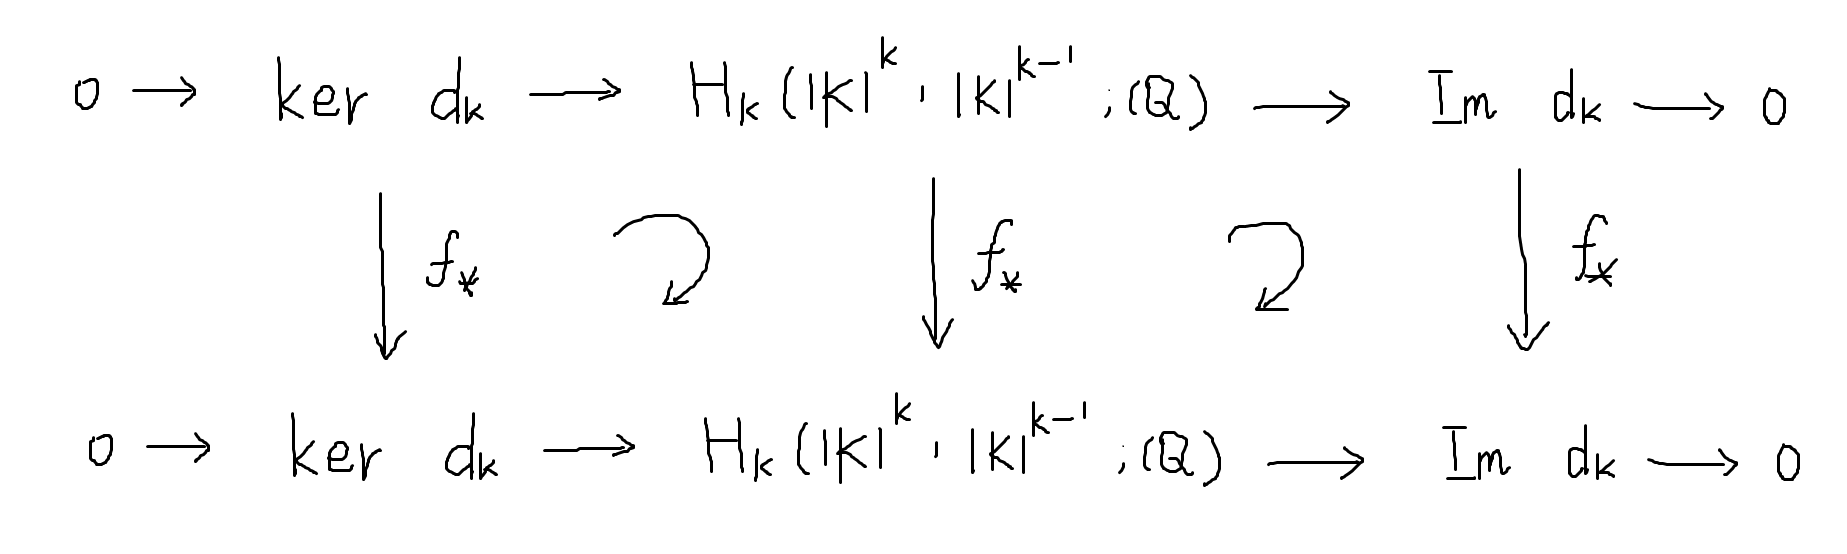 0 → ker dₖ → Hₖ(|K|ᵏ, |K|ᵏ⁻¹; ℚ) → Im dₖ → 0
f_* f_* f_*
0 → ker dₖ → Hₖ(|K|ᵏ, |K|ᵏ⁻¹; ℚ) → Im dₖ → 0